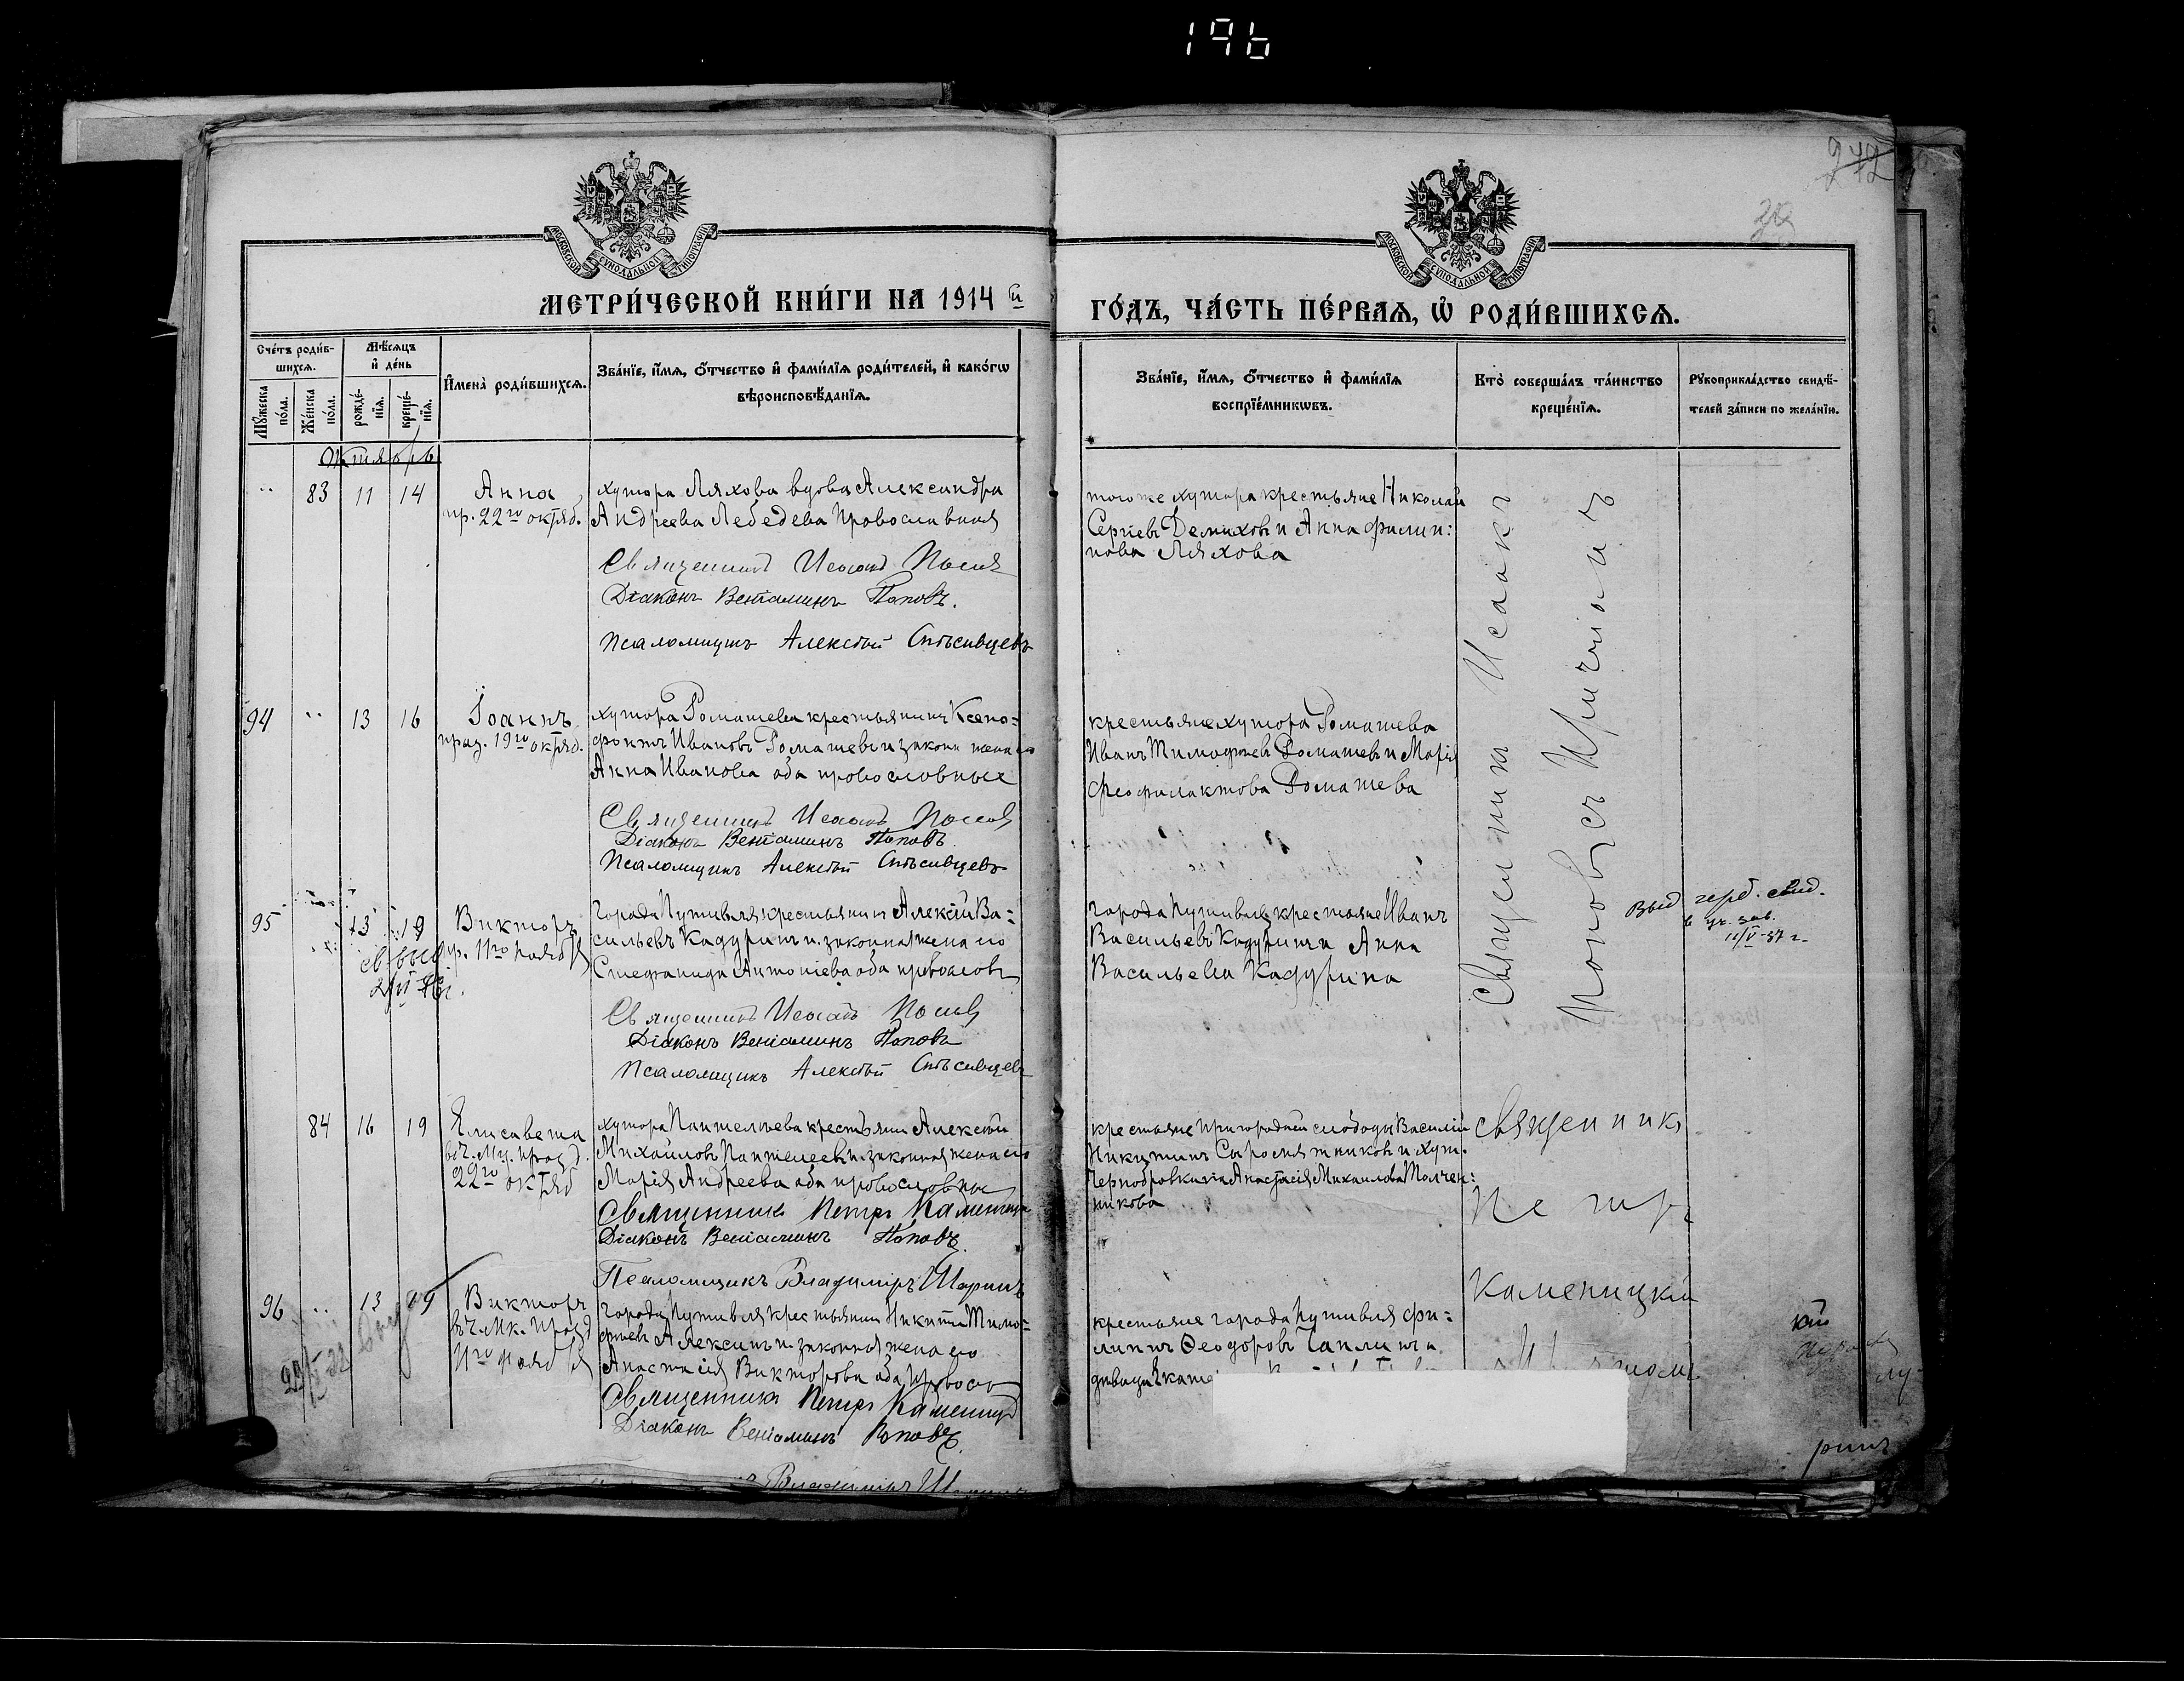 196
242
МОСКОВСКОЙ СѴНОДАЛЬНОЙ ТИПОГРАФІИ
МОСКОВСКОЙ СѴНОДАЛЬНОЙ ТИПОГРАФІИ
МЕТРИ́ЧЕСКОЙ КНИ́ГИ НА 1914 й
ГО́ДЪ, ЧА́СТЬ ПЕ́РВАѦ, Ѡ҆ РОДИ́ВШИХСѦ.
Сче́тъ роди́в-
шихсѧ.
Мѣ́сѧцъ
и҆ де́нь
Мꙋ́жеска
по́ла.
Же́нска
по́ла.
рожде́-
нїѧ.
креще́-
нїѧ.
И҆мена̀ роди́вшихсѧ.
Зва́нїе, и҆́мѧ, ѻ҆́тчество и҆ фами́лїѧ роди́телей, и҆ како́гѡ
вѣроисповѣ́данїѧ.
Зва́нїе, и҆́мѧ, ѻ҆́тчество и҆ фами́лїѧ
воспрїе́мникѡвъ.
Кто̀ соверша́лъ та́инство
креще́нїѧ.
Рꙋкоприкла́дство свидѣ́-
телей за́писи по жела́нїю.
Октябрь
83 11 14 Анна
пр. 22го октяб.
хутора Ляхова вдова Александра
Андреева Лебедева Православная
Священникъ Исаакъ Попов
Діаконъ Веніаминъ Поповъ.
Псаломщикъ Алексѣй Спѣсивцевъ
тогоже хутора крестьяне Николай
Сергіевъ Демиховъ и Анна Филип:
пова Ляхова
94 13 16 Іоаннъ
праз. 19го октяб.
хутора Ромашева крестьянинъ Ксено=
фонтъ Ивановъ Ромашевъ и законн жена его
Анна Иванова оба православные
Священникъ Исаакъ Попов
Діаконъ Веніаминъ Поповъ
Псаломщикъ Алексѣй Спѣсивцевъ
крестьяне хутора Ромашева
Иванъ Тимофѣев Ромашевъ и Марія
Феофилактова Ромашева
Священникъ Исаакъ
Поповъ съ Причтомъ
95 13 19 Викторъ
пр. 11го ноября
города Путивля крестьянинъ Алексій Ва=
сильевъ Кадуринъ и законная жена его
Стефанида Антоніева оба православ
Священникъ Исаакъ Попов
Діаконъ Веніаминъ Поповъ
Псаломщикъ Алексѣй Спѣсивцевъ
города Путивля крестьяне Иванъ
Васильевъ Кадуринъ и Анна
Васильева Кадурина
выд герб. свид.
в уч. зав.
11/V-37 г.
84 16 19 Елисавета
22го октяб
хутора Пантелѣева крестьянин Алексѣй
Михайловъ Пантелеевъ и законная жена его
Марія Андреева оба православны
Священникъ Петръ Каменицкій
Діаконъ Веніаминъ Поповъ.
Псаломщикъ Владиміръ Шаринъ
крестьяне Пригородней слободы Василій
Никитинъ Сыромятниковъ и хут.
Анастасія Михаилова Толчен:
никова
священникъ
Петръ
Каменицкій
96 13 19 Викторъ
11го ноября
города Путивля крестьянин Никита Тимо=
фѣевъ Алексинъ и законная жена его
Анастасія Викторова оба Правосл
Священникъ Петръ Каменицкій
Діаконъ Веніаминъ Поповъ.
Владиміръ Шаринъ
крестьяне города Путивля Фи=
липпъ Ѳеодоровъ Чаплинъ и
дѣвица